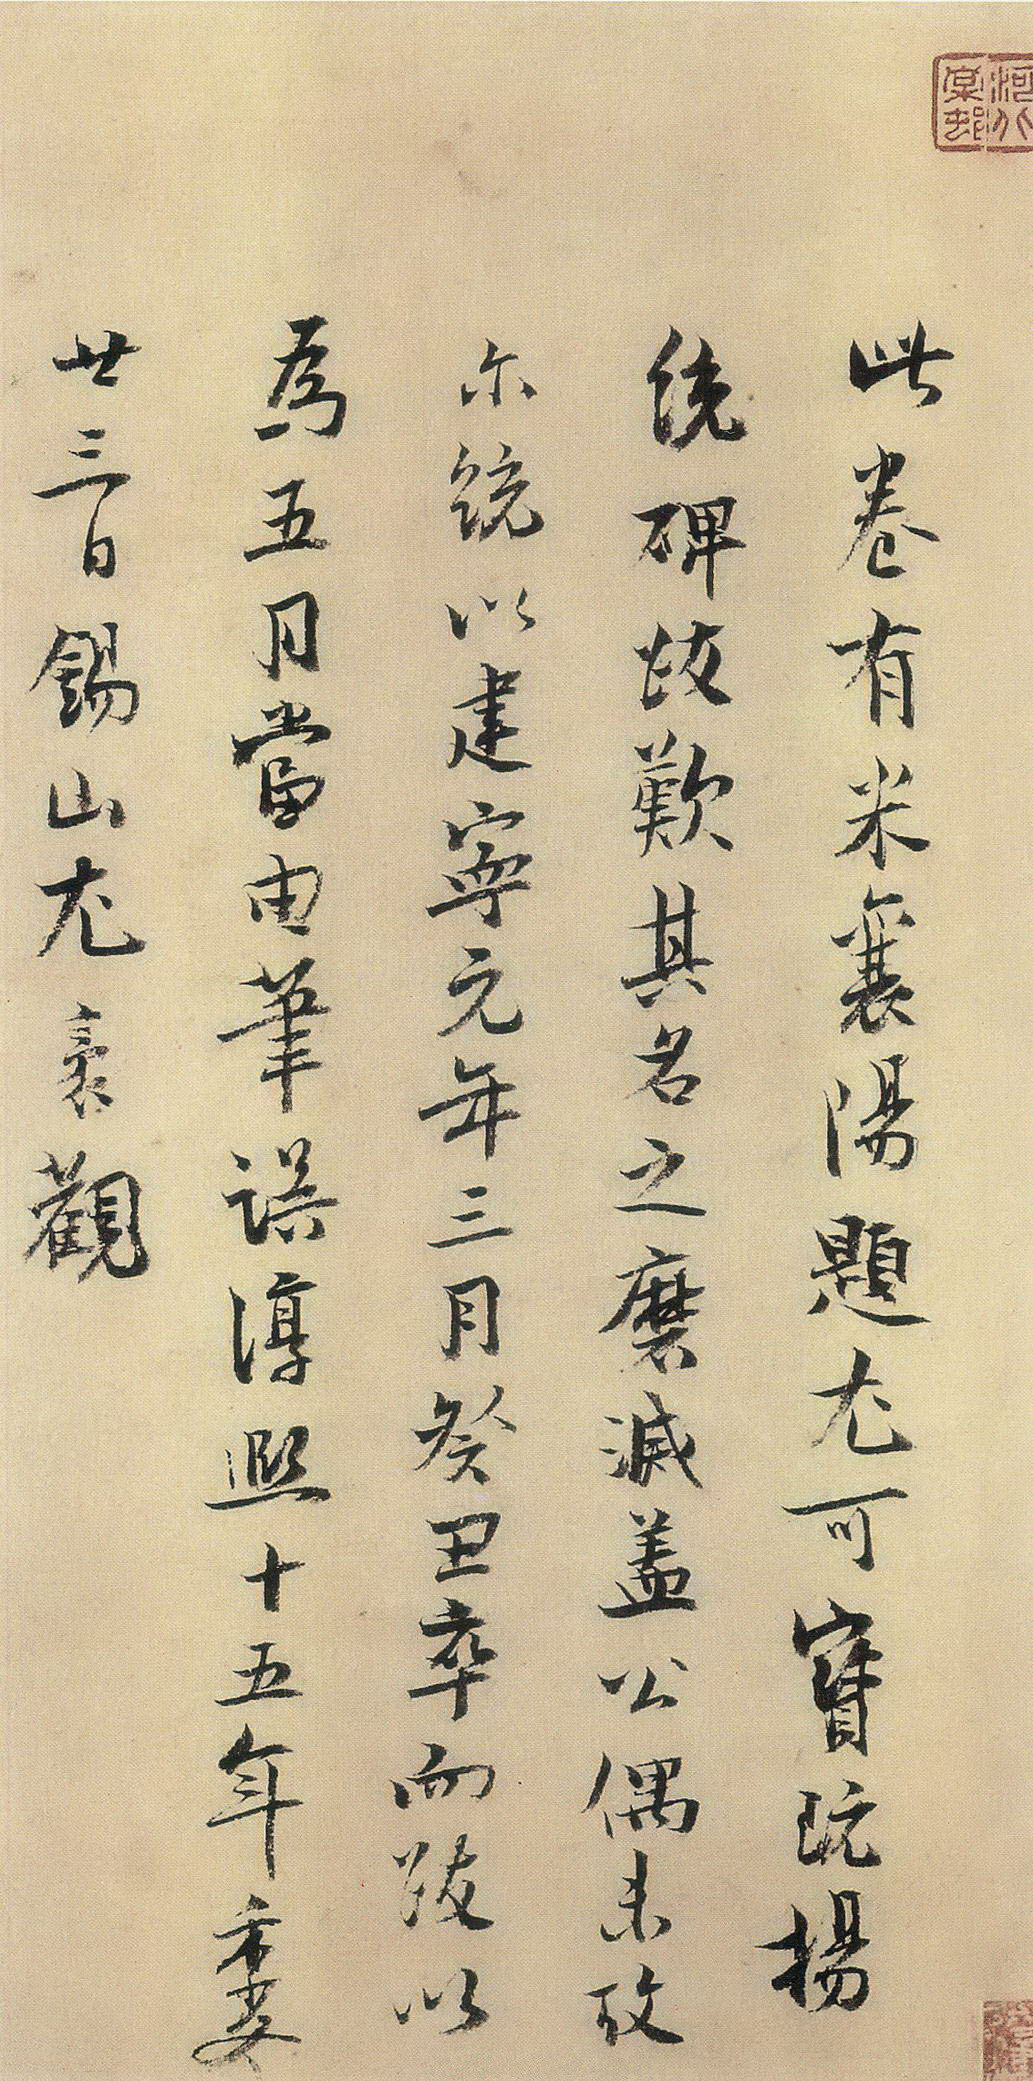 河北
棠邨
此卷有米襄陽題尤可寶玩揚
統碑跋歎其名之磨滅蓋公偶未攷
尔統以建寧元年三月癸丑卒而跋以
為五月當由筆誤淳熙十五年
廿三日錫山尤袤觀